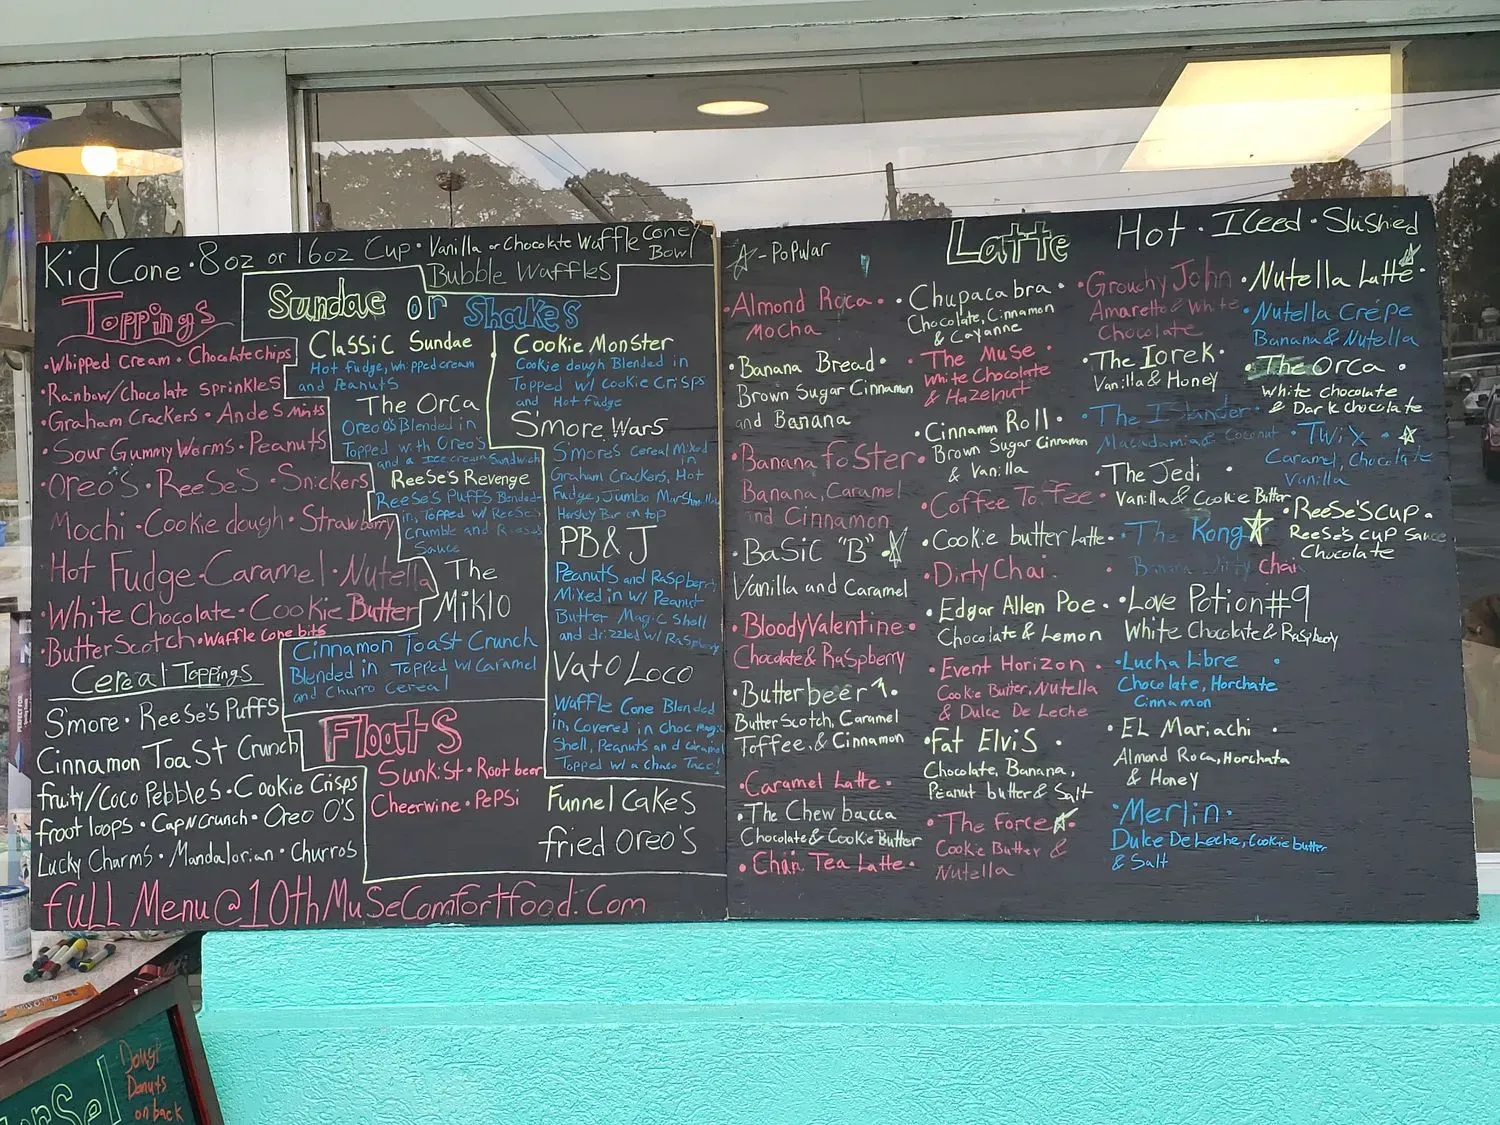 Kid Cone · 8oz or 16oz Cup · Vanilla or Chocolate Waffle Cone/
Bowl
Bubble Waffles
Toppings
·Whipped Cream · Chocolate chips
·Rainbow/Chocolate sprinkles
·Graham Crackers · Andes Mints
·Sour Gummy Worms · Peanuts
·Oreo'S · ReeSe'S · Snickers
Mochi · Cookie dough · Strawberry
Hot Fudge · Caramel · Nutella
·White Chocolate · Cookie Butter
·ButterScotch · Waffle Cone bits
Cereal Toppings
S'more · ReeSe'S Puffs
Cinnamon ToaSt Crunch
fruity/Coco Pebbles · Cookie Crisps
froot loops · CapNCrunch · Oreo O'S
Lucky Charms · Mandalorian · Churros
Sundae or Shakes
Classic Sundae
Hot fudge, whipped cream
and Peanuts
The Orca
Oreo'S Blended in
Topped with Oreo'S
and a Ice cream Sandwich
ReeSe'S Revenge
ReeSe'S Puffs Blended
in, Topped w/ ReeSe'S
Crumble and Reese's
Sauce
The
MiKlO
Cinnamon Toast Crunch
Blended in Topped w/ Caramel
and Churro Cereal
Cookie Monster
Cookie dough Blended in
Topped w/ cookie Crisps
and Hot fudge
S'more Wars
S'mores Cereal Mixed
in
Graham Crackers, Hot
Fudge, Jumbo Marshmallow
Hershey Bar on top
PB & J
Peanuts and Raspberry
Mixed in w/ Peanut
Butter Magic Shell
and drizzled w/ Raspberry
Vato Loco
Waffle Cone Blended
in, Covered in Choc magic
Shell, Peanuts and Caramel
Topped w/ a Choco Taco!
Floats
Sunkist · Root beer
Cheerwine · PePSi
Funnel Cakes
fried Oreo'S
Full Menu@10thMuSeComfortfood.Com
☆ - Popular
Latte
Hot · Iceed · Slushied
·Almond Roca ·
Mocha
·Banana Bread ·
Brown Sugar Cinnamon
and Banana
·Banana foSter ·
Banana, Caramel
and Cinnamon
·BaSiC "B" · ☆
Vanilla and Caramel
·BloodyValentine ·
Chocolate & Raspberry
·Butterbeer ·
ButterScotch, Caramel
Toffee, & Cinnamon
·Caramel Latte ·
·The Chewbacca
Chocolate & Cookie Butter
·Chai Tea Latte ·
·Chupacabra ·
Chocolate, Cinnamon
& Cayanne
·The Muse ·
White Chocolate
& Hazelnut
·Cinnamon Roll ·
Brown Sugar Cinnamon
& Vanilla
·Coffee To fee ·
·Cookie butter Latte ·
·Dirty Chai ·
·Edgar Allen Poe ·
Chocolate & Lemon
·Event Horizon ·
Cookie Butter, Nutella
& Dulce De Leche
·Fat Elvis ·
Chocolate, Banana,
Peanut butter & Salt
·The Force ☆ ·
Cookie Butter &
Nutella
·Grouchy John ·
Amaretto & White
Chocolate
·The Iorek ·
Vanilla & Honey
·The Islander ·
Macadamia & Coconut
·The Jedi ·
Vanilla & Cookie Butter
·The Kong ☆
Banana Dirty chai
·Love Potion#9
White Chocolate & Raspberry
·Lucha Libre ·
Chocolate, Horchate
Cinnamon
·EL Mariachi ·
Almond Roca, Horchata
& Honey
·Merlin ·
Dulce De Leche, Cookie butter
& Salt
·Nutella Latte · ☆
·Nutella Crepe
Banana & Nutella
·The Orca ·
White chocolate
& Dark chocolate
·TWiX · ☆
Caramel, Chocolate
Vanilla
·ReeSe'S CUP ·
ReeSe'S CUP Sauce
Chocolate
Donuts
on back